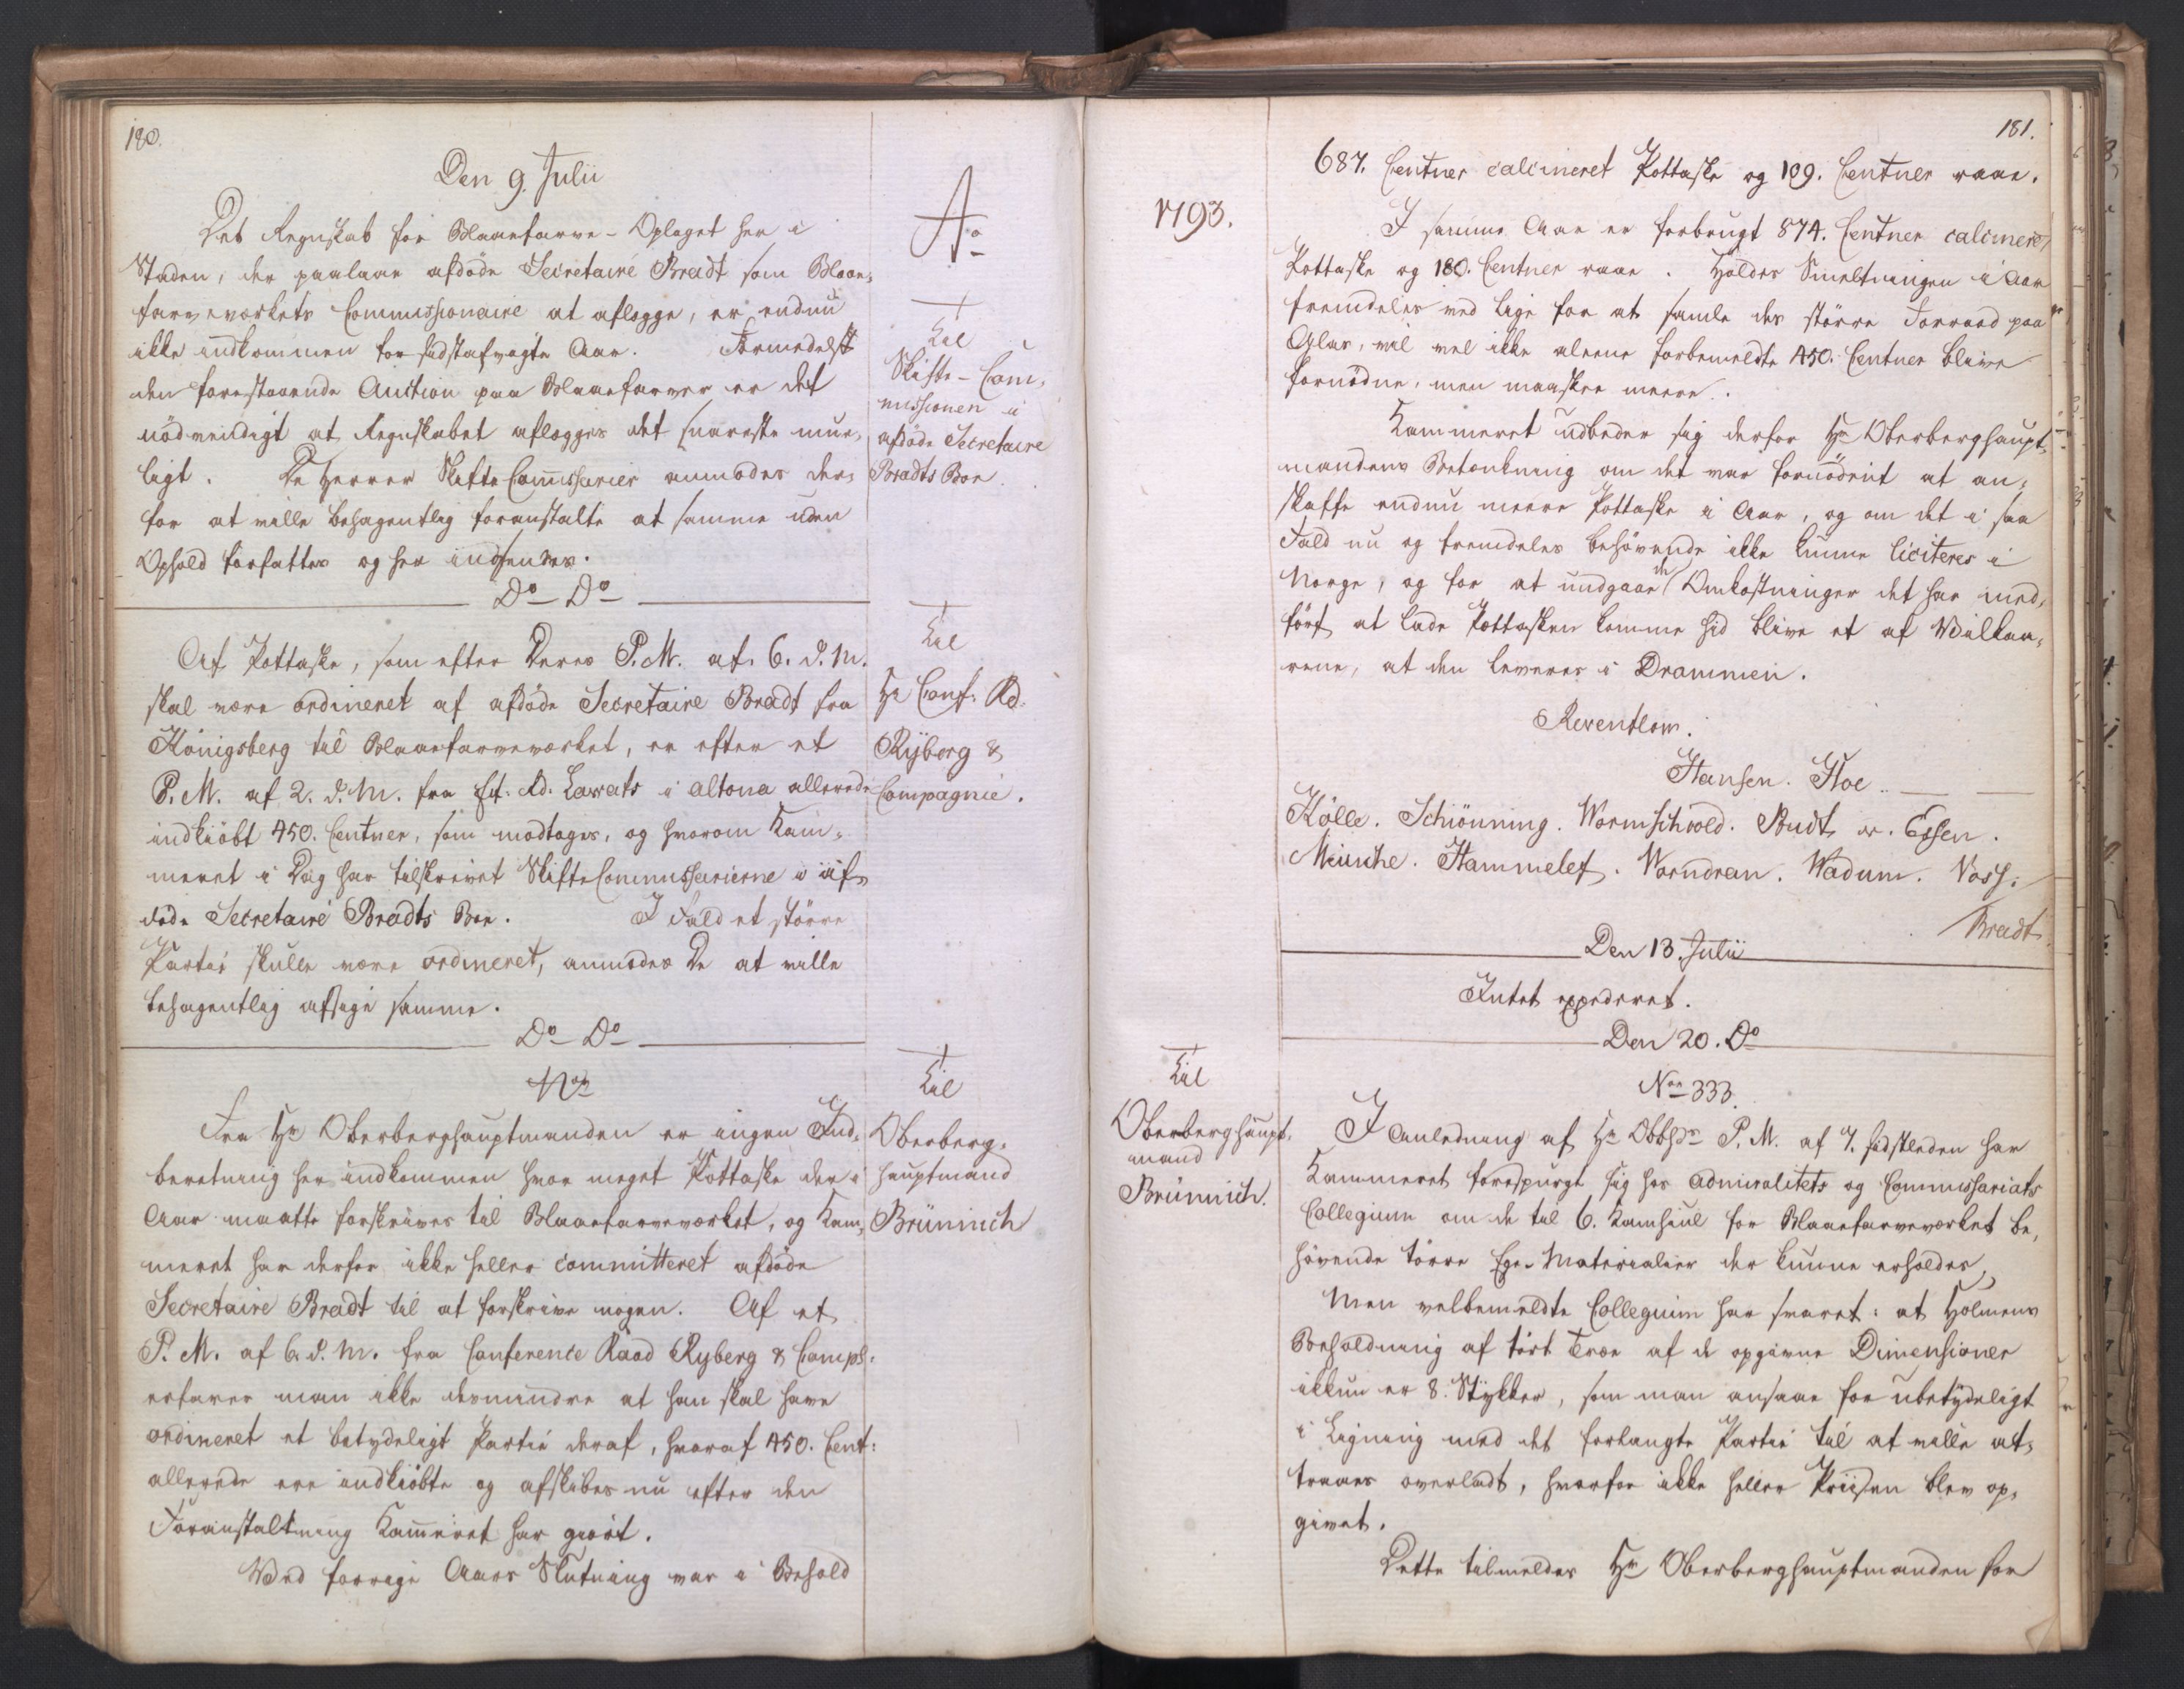 180.
Den 9. Julii
Det Regnskab for Blaaefarve-Oplaget her i
Staden, der paalaae afdöde Secretaire Bredt som Blaae,
farveværkets Commissionaire at aflegge, er endnu
ikke indkommen for sidstafvigte Aar. Formedelst
den forestaaende Auction paa Blaaefarver er det
nödvendigt at Regnskabet aflegges det snareste mue,
ligt. De Herrer Skifte Commissarier anmodes der,
for at ville behagentlig foranstalte at samme uden
Ophold forfattes og her indsendes.
Ao
Til
Skifte-Com,
missionen i
afdöde Secretaire
Bredts Boe.
Do Do
Af Pottaske, som efter Deres P.M. af 6. d. M.
skal være ordineret af afdöde Secretaire Bredt fra
Königsberg til Blaaefarveværket, er efter et
P.M. af 2. d. M. fra Et. Rd. Lawats i Altona allerede
indkiöbt 450. Centner, som modtages, og hvorom Kam,
meret i Dag har tilskrevet Skifte Commissarierne i af,
döde Secretaire Bredts Boe. I Fald et större
Partie skulle være ordineret, anmodes De at ville
behagentlig afsige samme.
Til
Hr Conf: Rd.
Ryberg &
Compagnie.
Do Do
Non
Fra Hr Oberberghauptmanden er ingen Ind,
beretning her indkommen hvor meget Pottaske der i
Aar maatte forskrives til Blaaefarveværket, og Kam,
meret har derfor ikke heller committeret afdöde
Secretaire Bredt til at forskrive nogen. Af et
P.M. af 6. d. M. fra Conference Raad Ryberg & Comp:
erfarer man ikke desmindre at han skal have
ordineret et betydeligt Partie deraf, hvoraf 450. Cent:
allerede ere indkiöbte og afskibes nu efter den
Foranstaltning Kammeret har giört.
Ved forrige Aars Slutning var i Behold
Til
Oberberg,
hauptmand
Brünnich
181.
1793.
687. Centner calcineret Pottaske og 109. Centner raae.
I samme Aar er forbrugt 874. Centner calcineret
Pottaske og 180. Centner raae. Holdes Smeltningen i Aar
fremdeles ved lige for at samle des större Forraad paa
Glas, vil vel ikke aleene forbemeldte 450. Centner blive
fornödne, men maaskee meere.
Kammeret udbeder sig derfor Hr Oberberghaupt,
mandens Betænkning om det var fornödent at an,
skaffe endnu meere Pottaske i Aar, og om det i saa
Fald nu og fremdeles behövende ikke kunne liciteres i
Norge, og for at undgaae de Omkostninger det har med,
fört at lade Pottasken komme hid blive et af Vilkaa,
rene, at den leveres i Drammen.
Reventlow.
Hansen. Hoe
Kölle. Schiönning. Wormschiold. Budt v. Essen.
Müncke. Hammelef. Vorndran. Wadum. Voss:
Bredt.
Den 13. Julii
Intet expederet.
Den 20. Do
Non 333.
I Anledning af Hr Obbhds P.M. af 7. sidstleden har
Kammeret forespurgt sig hos Admiralitets og Commissariats
Collegium om de til 6. Kamhiul for Blaaefarveværket be,
hövende törre Ege-Materialier der kunne erholdes,
Men velbemeldte Collegium har svaret: at Holmens
Beholdning af tört Træe af de opgivne Dimensioner
ikkun er 8. Stykker, som man ansaae for ubetydeligt
i Ligning med det forlangte Partie til at ville at,
traaes overladt, hvorfor ikke heller Priisen blev op,
givet.
Dette tilmeldes Hr Oberberghauptmanden for
Til
Oberberghaupt,
mand
Brünnich.